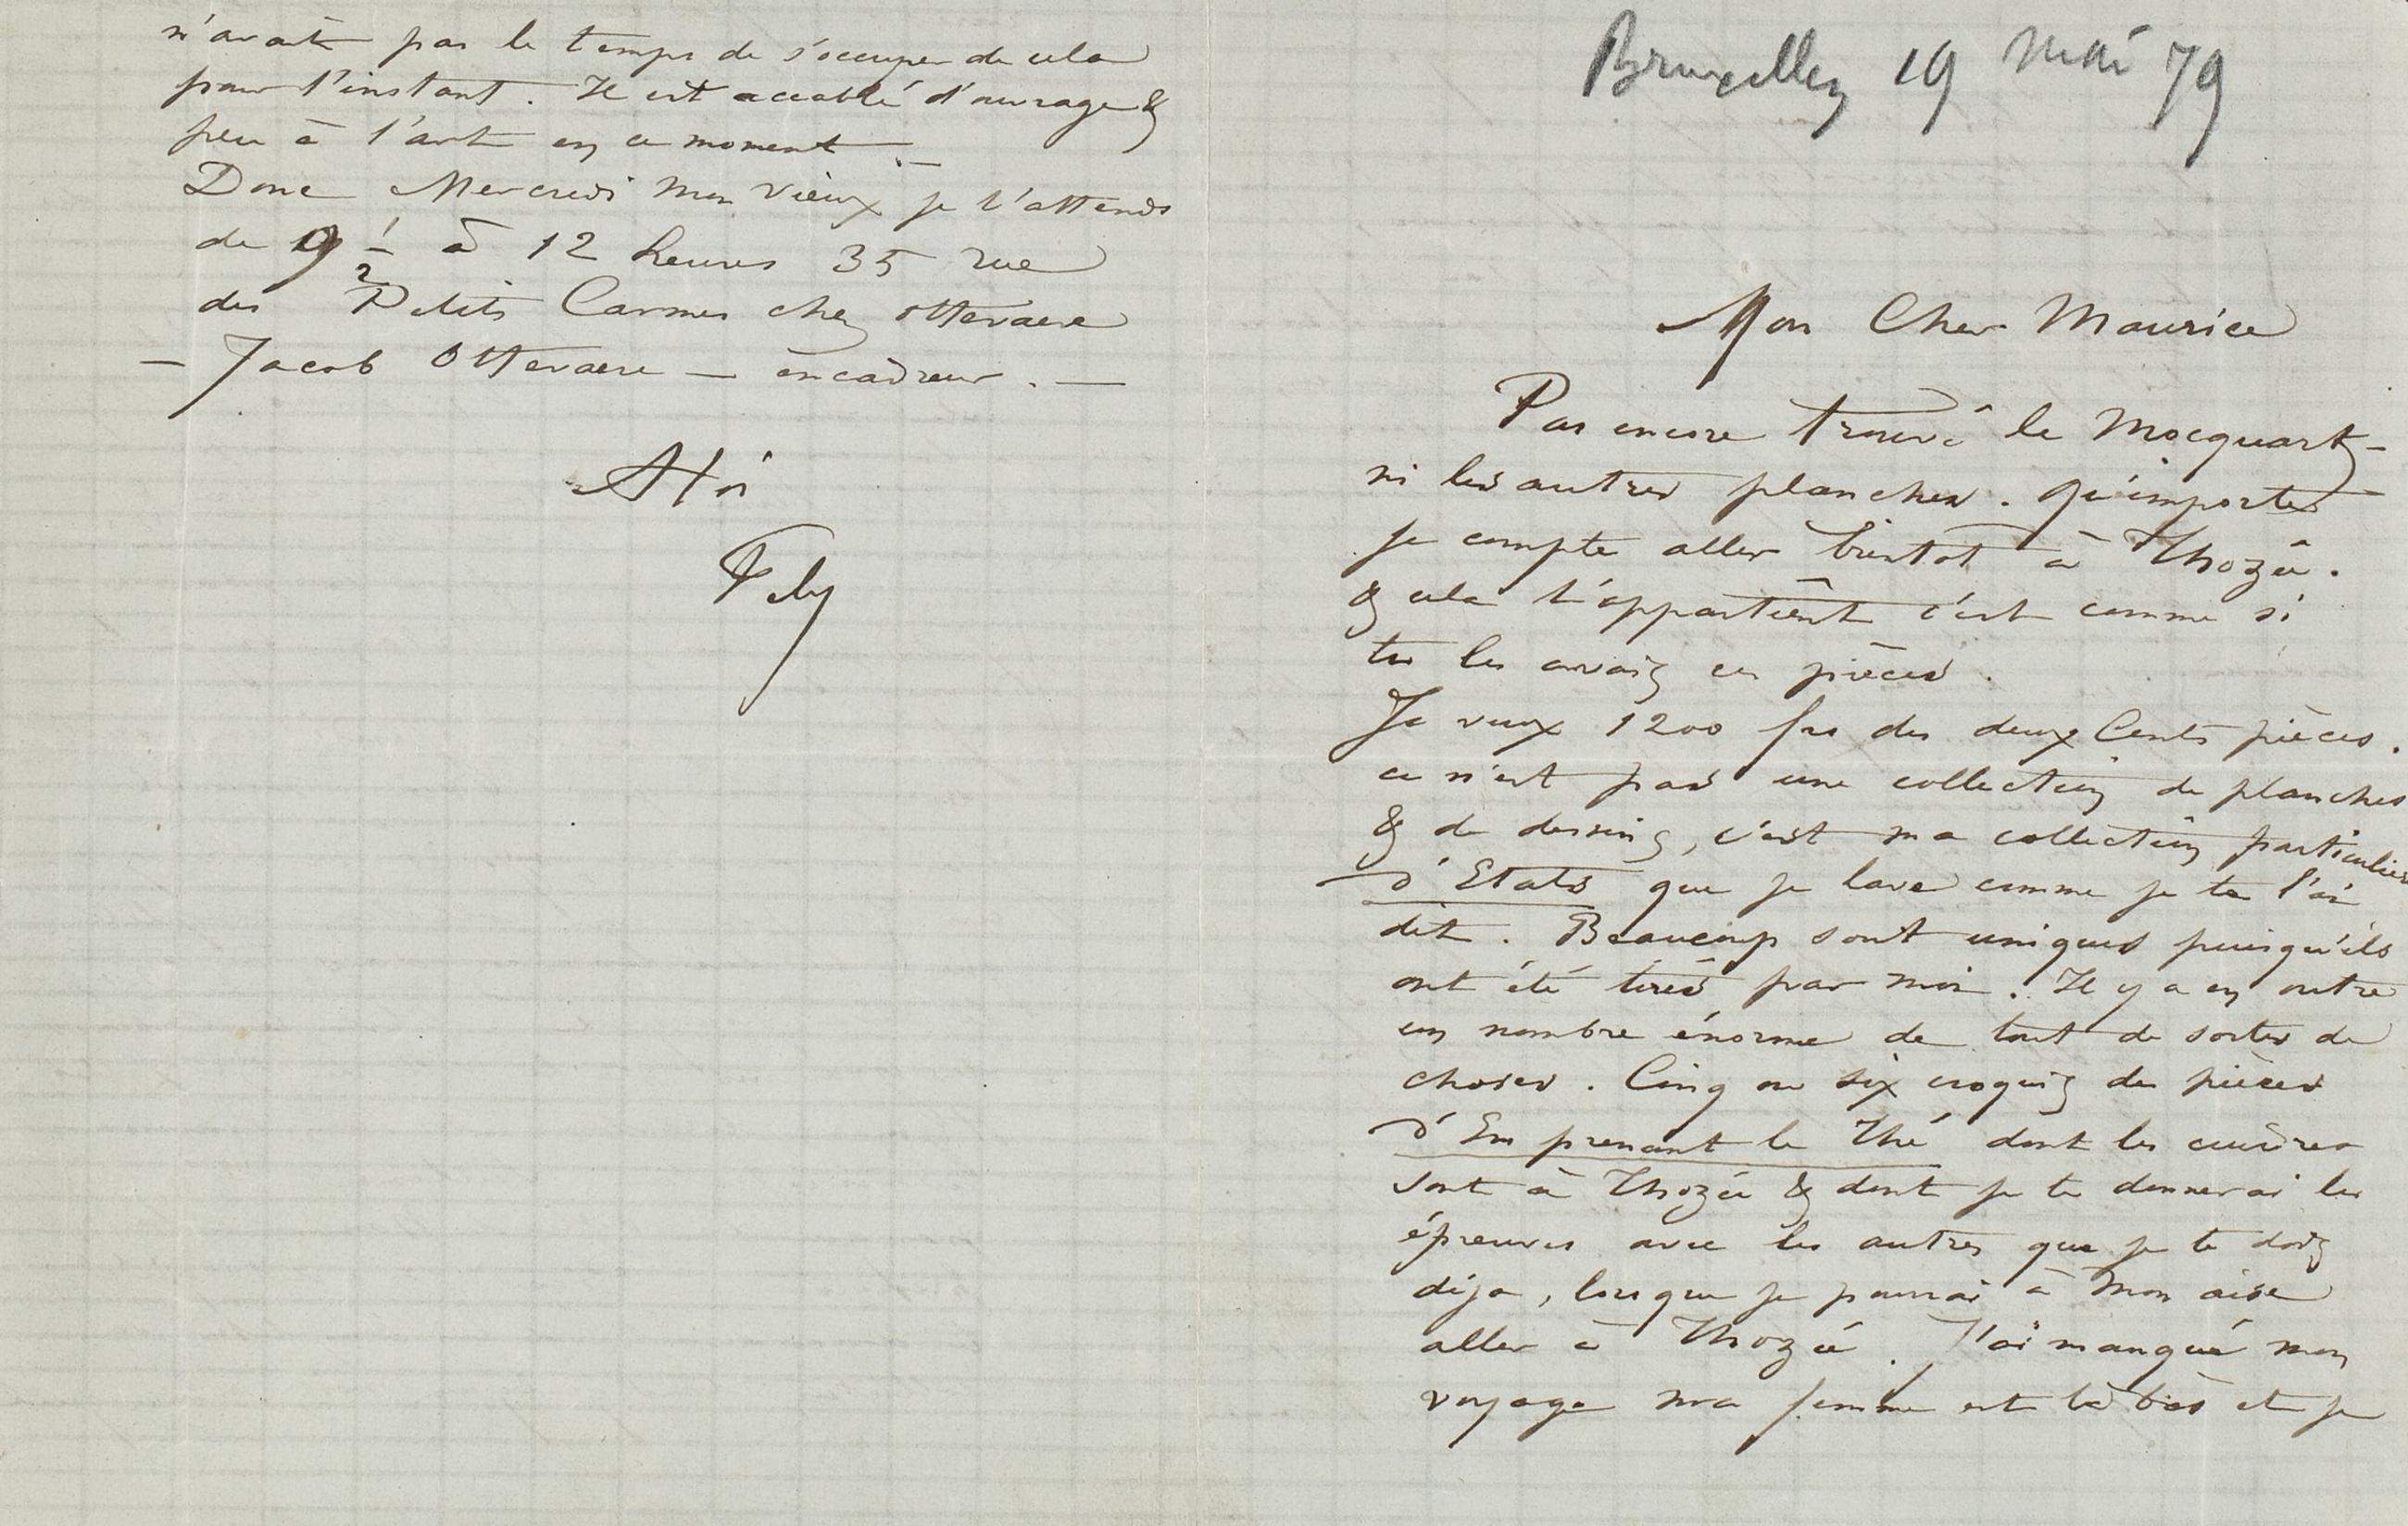 Bruxelles 19 Mai 79
Mon Cher Maurice
Pas encore trouvé le Mocquart –
ni les autres planches. Qu'importe
je compte aller bientot à Thozée.
& cela t'appartient c'est comme si
tu les avais ces pièces.
Je veux 1200 frs des deux Cents pièces.
ce n'est pas une collection de planches
& de dessins, c'est ma collection particulière
d'Etats que je lave comme je te l'ai
dit. Beaucoup sont uniques puisqu'ils
ont été tirés par moi. Il y a en outre
un nombre énorme de tout de sortes de
choses. Cinq ou six croquis des pièces
d'En prenant le Thé dont les cuivres
sont à Thozée & dont je te donnerai les
épreuves avec les autres que je te dois
déja, lorsque je pourrai à mon aise
aller à Thozée. J'ai manqué mon
voyage ma femme est là bàs et je
n'avait pas le temps de s'occuper de cela
pour l'instant. Il est accablé d'ouvrage &
peu à l'art en ce moment. –
Donc Mercredi mon vieux je t'attends
de 9 1/2 à 12 heures 35 rue
des Petits Carmes chez Ottevaere
– Jacob Ottevaere – encadreur. –
A toi
Fély